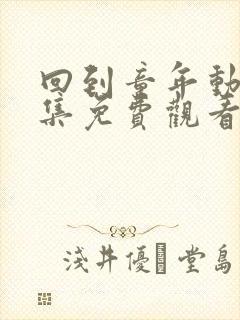 回到童年動
集免費觀看
淺井優 堂島